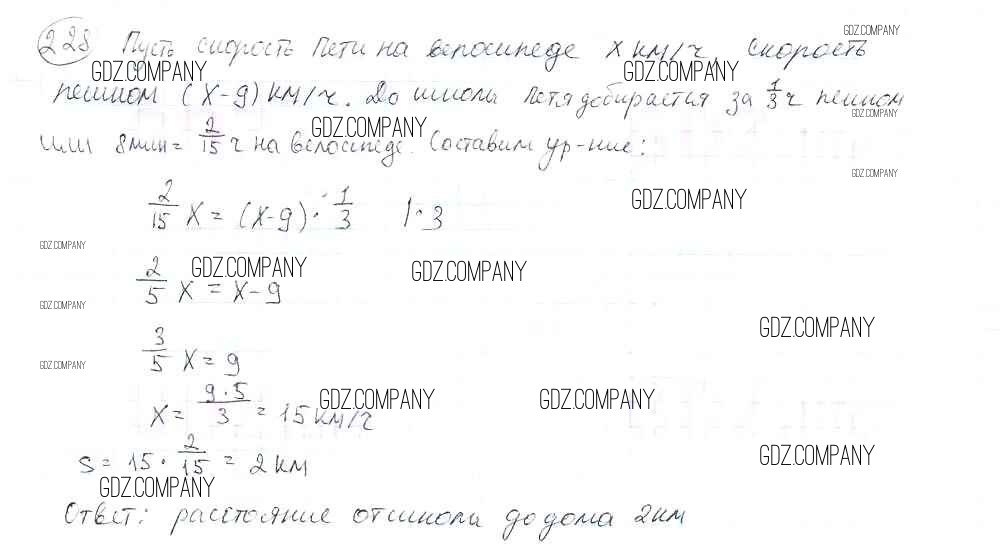 228 Пусть скорость Пети на велосипеде x км/ч, скорость
GDZ.COMPANY
GDZ.COMPANY GDZ.COMPANY
пешком (x-9) км/ч. До школы Петя добирается за 1/3 ч пешком
GDZ.COMPANY
GDZ.COMPANY
или 8 мин = 2/15 ч на велосипеде. Составим ур-ние:
GDZ.COMPANY
2/15 x = (x-9) · 1/3 | · 3
GDZ.COMPANY
GDZ.COMPANY
GDZ.COMPANY GDZ.COMPANY
2/5 x = x - 9
GDZ.COMPANY
GDZ.COMPANY
3/5 x = 9
GDZ.COMPANY
GDZ.COMPANY GDZ.COMPANY
x = 9·5/3 = 15 км/ч
GDZ.COMPANY
S = 15 · 2/15 = 2 км
GDZ.COMPANY
Ответ: расстояние от школы до дома 2 км